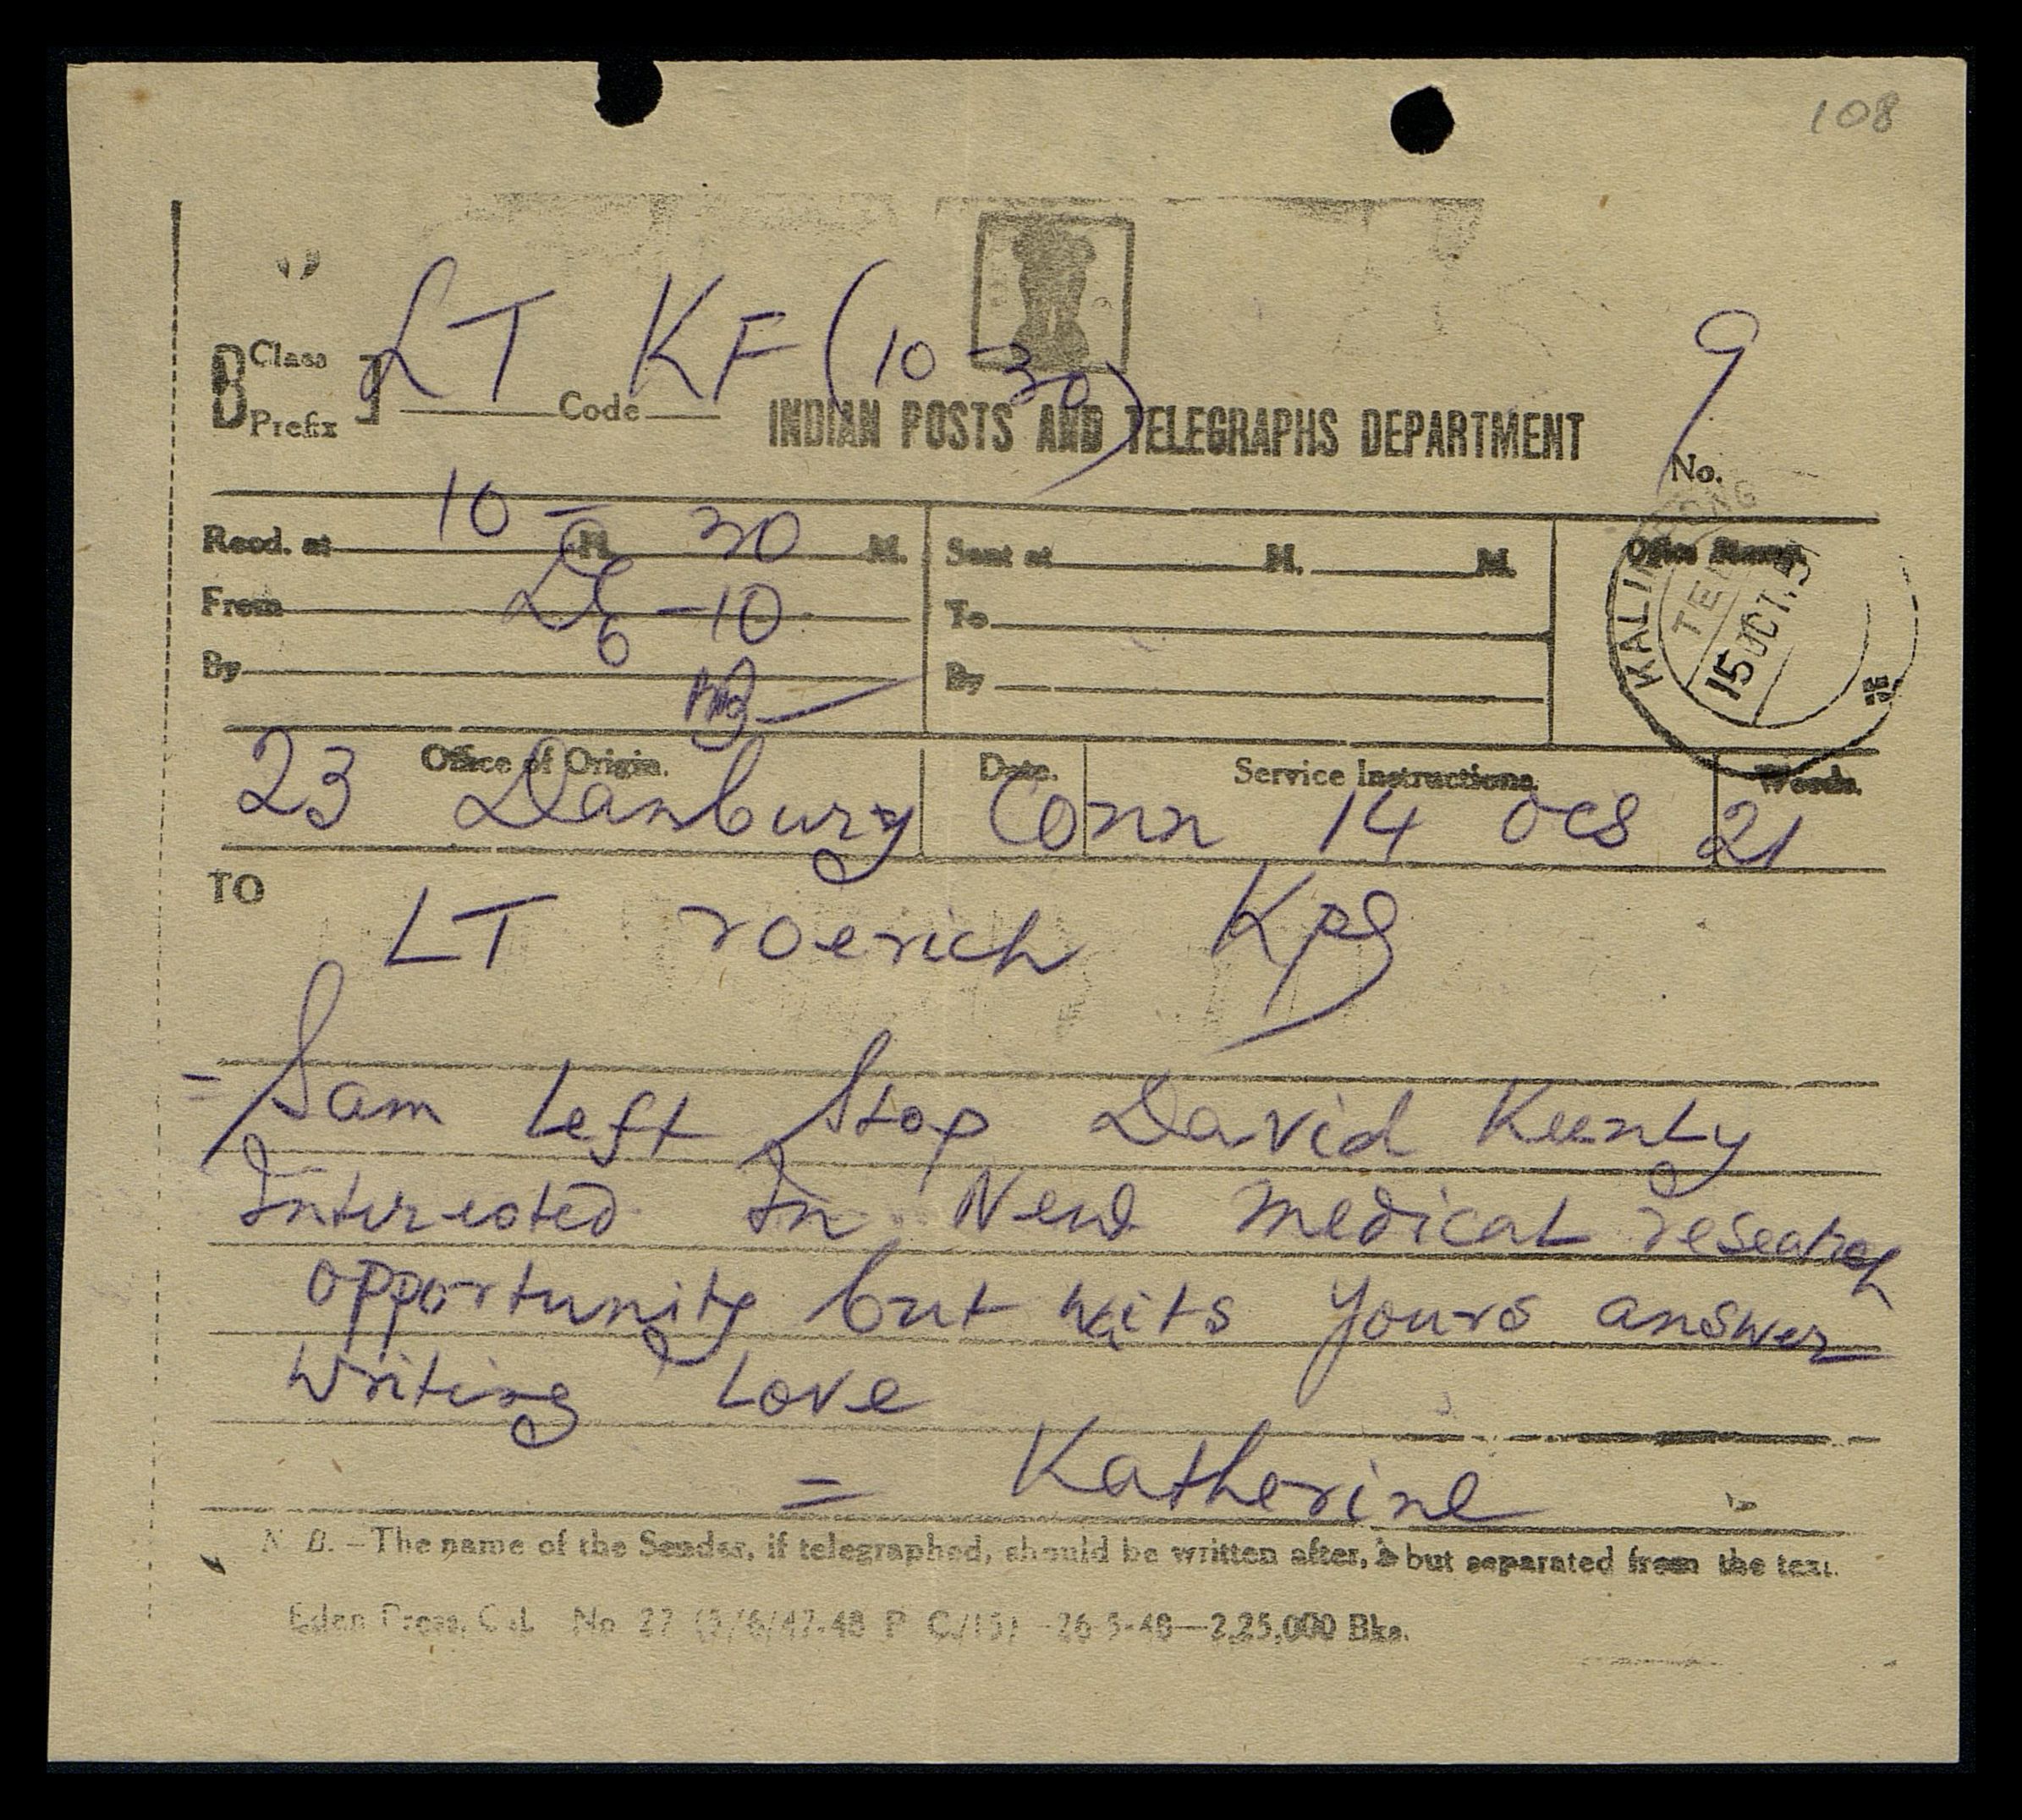 108
LT KF (10-30)
9
B Class
Prefix
Code
INDIAN POSTS AND TELEGRAPHS DEPARTMENT
No.
10 - 30
Recd. at H. M.
Sent at H. M.
Office Stamp.
From
To
By
By
KALIMPONG
15 OCT.
Office of Origin.
Date.
Service Instructions.
Words.
23 Danbury Conn 14 21
TO
LT roerich Kpg
= Sam Left Stop David
Interested In New medical research
opportunity but waits yours answer
writing Love
= Katherine
N. B.—The name of the Sender, if telegraphed, should be written after, but separated from the text.
Eden Press, Cal. No 27 (3/6/47-48 P C/15) -26-5-48—2,25,000 Bks.